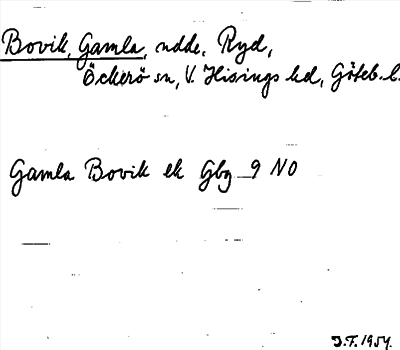 Bovik, Gamla, udde, Ryd,
Öckerö sn, V. Hisings hd, Göteb. l.
Gamla Bovik ek Gbg 9 NO
J.F. 1954.